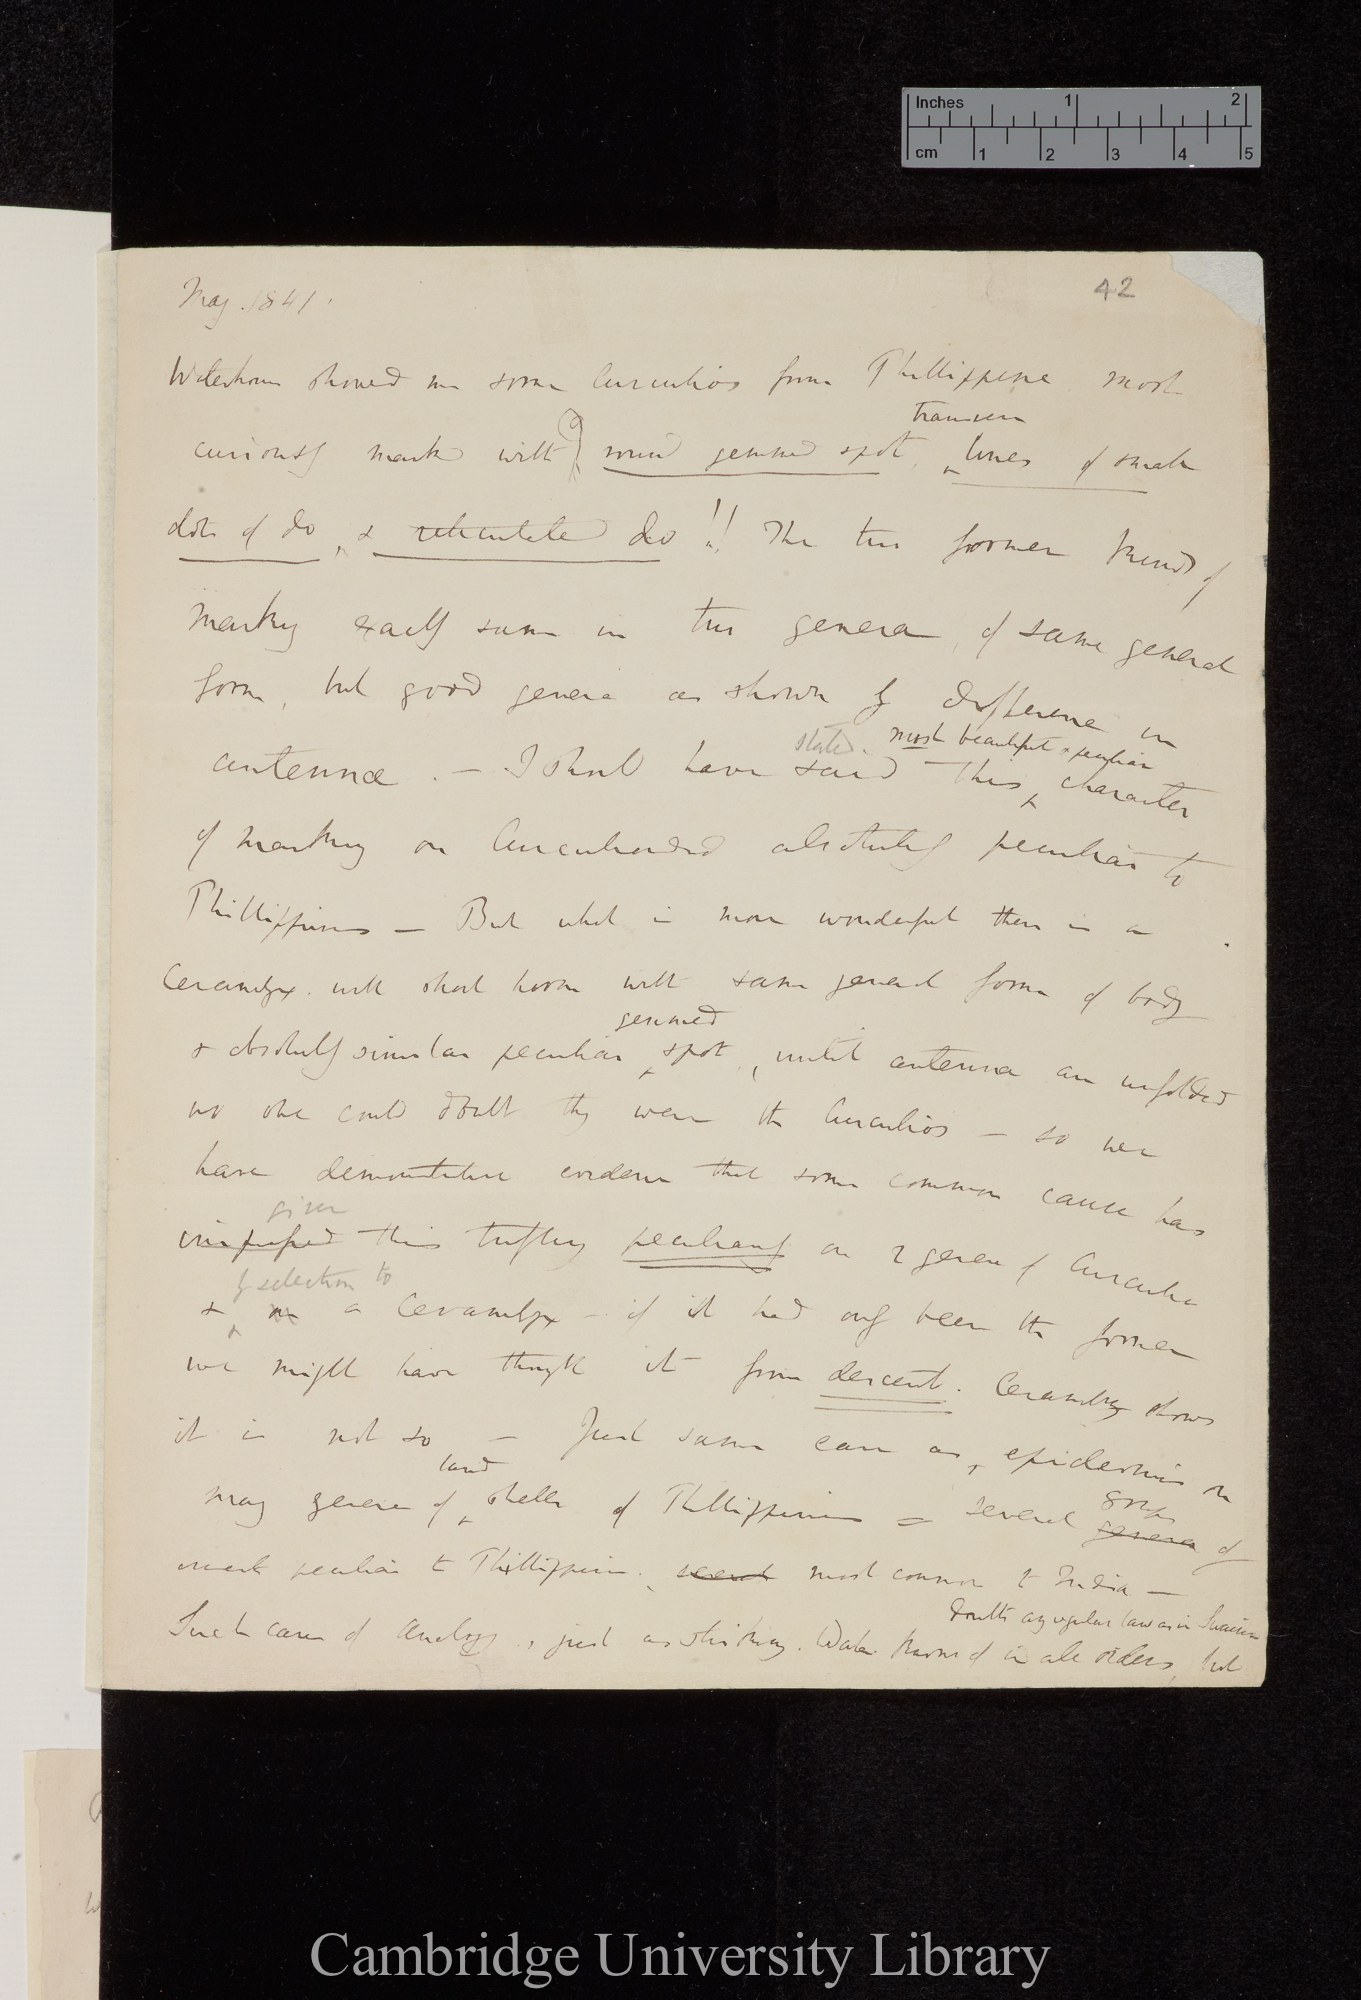 Inches 1 2
cm 1 2 3 4 5
42
May. 1841.
Waterhouse showed me some Curculios from Phillippine most
transverse
curiously marked with round gemmed spot, lines of small
dots of do, & reticulated do!! The two former kinds of
marking exactly same in two genera, of same general
form, but good genera as shown by difference in
stated. most beautiful & peculiar
antennæ. — I should have said this character
of marking on Curculionidæ absolutely peculiar to
Phillippines — But what is more wonderful there is a
Cerambyx. with short horns with same general form of body
gemmed
& absolutely similar peculiar spot, until antennæ are unfolded
no one could doubt they were the Curculios — so we
have demonstrative evidence that some common cause has
given
impressed this trifling peculiarity on 2 genera of Curculio
by selection to
& on a Cerambyx — if it had only been the former
we might have thought it from descent. Cerambyx shows
it is not so, — Just same case as, epidermis in
land
many genera of shells of Phillippines = several groups
genera of
insects peculiar to Phillippine. several most common to India —
doubts any regular laws as in Swainson
Such cases of Analogy, just as striking. Water. knows of in all orders, but
Cambridge University Library